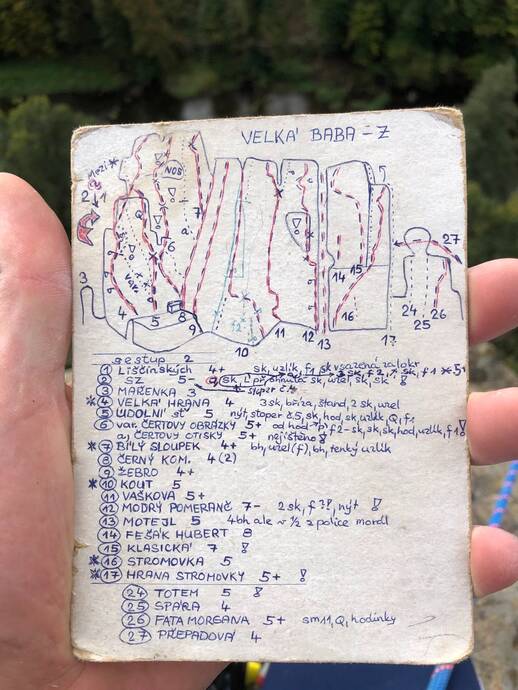 VELKÁ BABA - Z
Mezi *
NOS
2 1
Q
3
4 5 6 7 8 9
10 11 12 13
14 15 16 17
24 25 26 27
sestup 2
① LIŠČINSKÝCH 4+ sk, uzlík, f1 sk
② SZ 5-
③ MAŘENKA 3 stoper č.
*④ VELKÁ HRANA 4 3sk, bříza, štand, 2sk, uzel
⑤ ÚDOLNÍ st 5 nýt, stoper č.5, sk, hod, sk uzlík, Q, f1
⑥ var. ČERTOVY OBRÁZKY 5+ od hod
a) ČERTOVY OTISKY 5+ nejištěno
*⑦ BÍLÝ SLOUPEK 4+ bh, uzel(f), bh, tenký uzlík
⑧ ČERNÝ KOM. 4 (2)
⑨ ŽEBRO 4+
*⑩ KOUT 5
⑪ VAŠKOVA 5+
⑫ MODRÝ POMERANČ 7- 2sk, f ?!, nýt
⑬ MOTEJL 5 4bh ale v 1/2 z police mordl
⑭ FEŠÁK HUBERT 8
⑮ KLASICKÁ 7
*⑯ STROMOVKA 5
*⑰ HRANA STROMOVKY 5+
㉔ TOTEM 5
㉕ SPÁRA 4
㉖ FATA MORGANA 5+ sm11, Q, hodinky
㉗ PŘEPADOVÁ 4